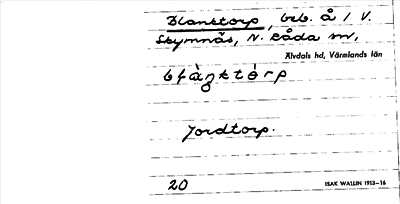 Blanktorp, beb. å / V.
Skymnäs, N. Råda sn,
Älvdals hd, Värmlands län
Jordtorp.
20 ISAK WALLIN 1913–16